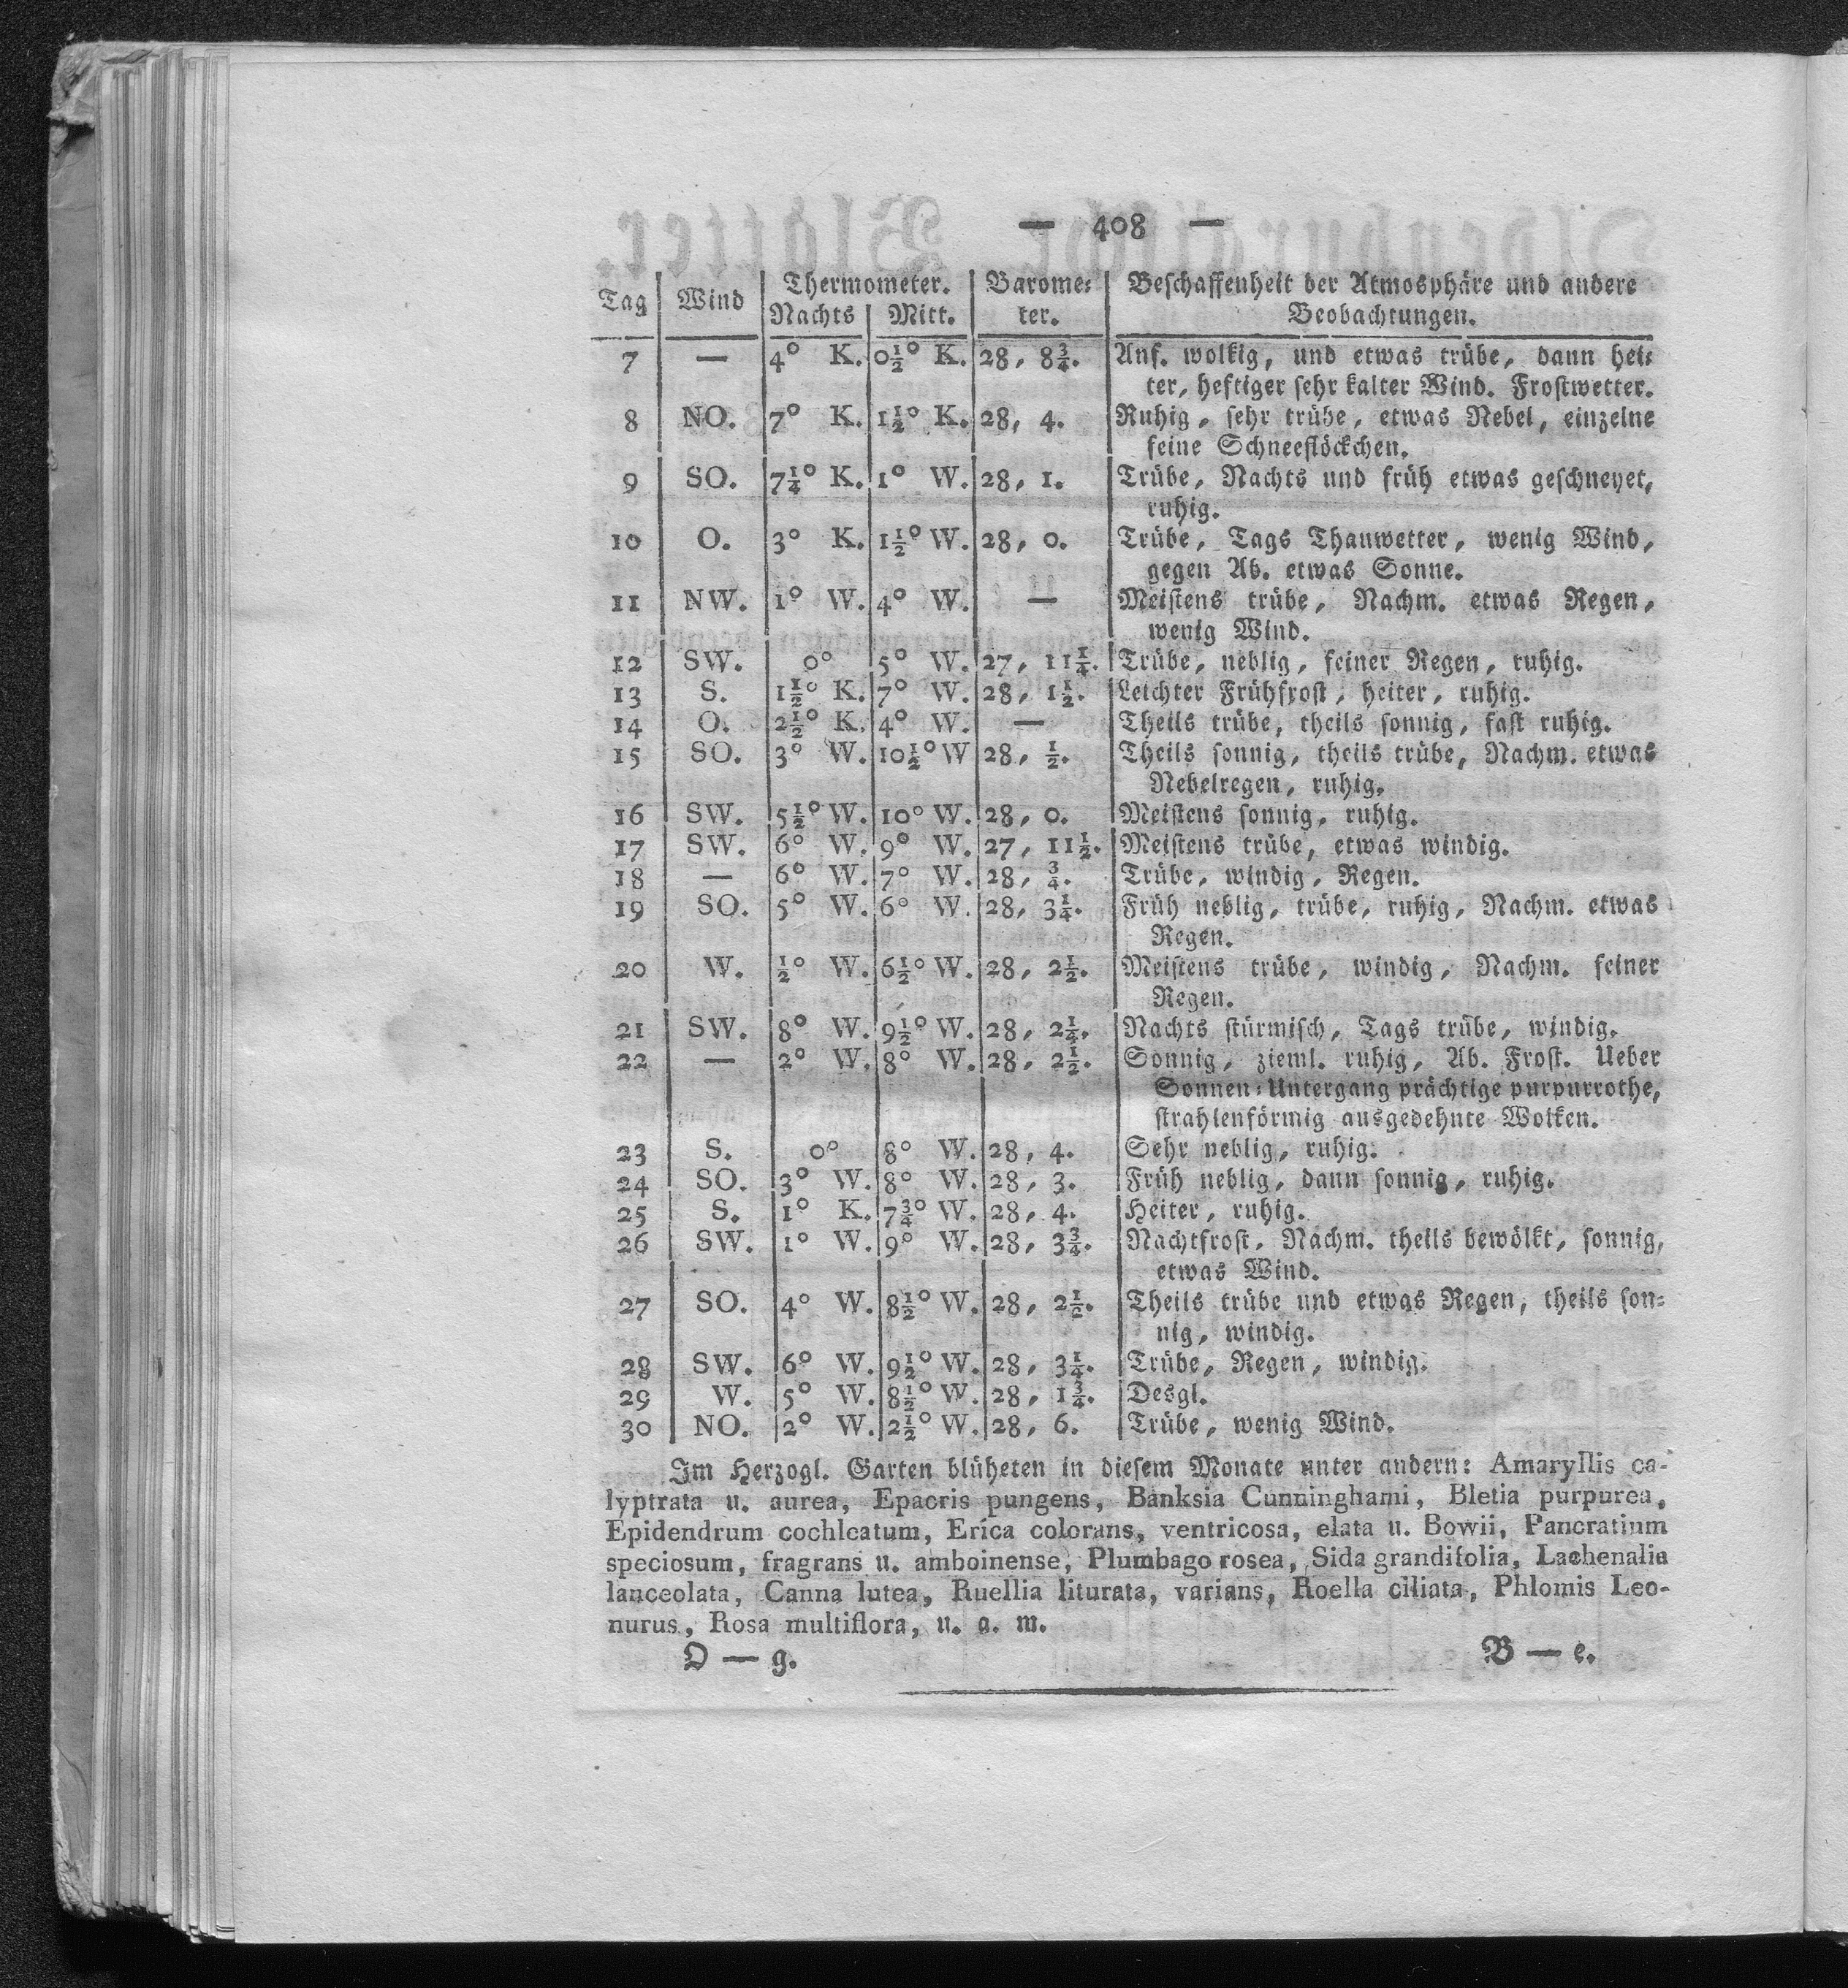 — 408 —
Tag | Wind | Thermometer. | Barome- | Beschaffenheit der Atmosphäre und andere
Nachts | Mitt. | ter. | Beobachtungen.
7 | — | 4° K. | 0½° K. | 28, 8¾. | Anf. wolkig, und etwas trübe, dann hei-
ter, heftiger sehr kalter Wind. Frostwetter.
8 | NO. | 7° K. | 1½° K. | 28, 4. | Ruhig, sehr trübe, etwas Nebel, einzelne
feine Schneeflöckchen.
9 | SO. | 7¼° K. | 1° W. | 28, 1. | Trübe, Nachts und früh etwas geschneyet,
ruhig.
10 | O. | 3° K. | 1½° W. | 28, 0. | Trübe, Tags Thauwetter, wenig Wind,
gegen Ab. etwas Sonne.
11 | NW. | 1° W. | 4° W. | — | Meistens trübe, Nachm. etwas Regen,
wenig Wind.
12 | SW. | 0° | 5° W. | 27, 11¼. | Trübe, neblig, feiner Regen, ruhig.
13 | S. | 1½° K. | 7° W. | 28, 1½. | Leichter Frühfrost, heiter, ruhig.
14 | O. | 2½° K. | 4° W. | — | Theils trübe, theils sonnig, fast ruhig.
15 | SO. | 3° W. | 10½° W | 28, ½. | Theils sonnig, theils trübe, Nachm. etwas
Nebelregen, ruhig.
16 | SW. | 5½° W. | 10° W. | 28, 0. | Meistens sonnig, ruhig.
17 | SW. | 6° W. | 9° W. | 27, 11½. | Meistens trübe, etwas windig.
18 | — | 6° W. | 7° W. | 28, ¾. | Trübe, windig, Regen.
19 | SO. | 5° W. | 6° W. | 28, 3¼. | Früh neblig, trübe, ruhig, Nachm. etwas
Regen.
20 | W. | ½° W. | 6½° W. | 28, 2½. | Meistens trübe, windig, Nachm. feiner
Regen.
21 | SW. | 8° W. | 9½° W. | 28, 2¼. | Nachts stürmisch, Tags trübe, windig.
22 | — | 2° W. | 8° W. | 28, 2½. | Sonnig, zieml. ruhig, Ab. Frost. Ueber
Sonnen-Untergang prächtige purpurrothe,
strahlenförmig ausgedehnte Wolken.
23 | S. | 0° | 8° W. | 28, 4. | Sehr neblig, ruhig.
24 | SO. | 3° W. | 8° W. | 28, 3. | Früh neblig, dann sonnig, ruhig.
25 | S. | 1° K. | 7¾° W. | 28, 4. | Heiter, ruhig.
26 | SW. | 1° W. | 9° W. | 28, 3¾. | Nachtfrost, Nachm. theils bewölkt, sonnig,
etwas Wind.
27 | SO. | 4° W. | 8½° W. | 28, 2½. | Theils trübe und etwas Regen, theils son-
nig, windig.
28 | SW. | 6° W. | 9½° W. | 28, 3¼. | Trübe, Regen, windig.
29 | W. | 5° W. | 8½° W. | 28, 1¾. | Desgl.
30 | NO. | 2° W. | 2½° W. | 28, 6. | Trübe, wenig Wind.
Im Herzogl. Garten blüheten in diesem Monate unter andern: Amaryllis ca-
lyptrata u. aurea, Epacris pungens, Banksia Cunninghami, Bletia purpurea,
Epidendrum cochleatum, Erica colorans, ventricosa, elata u. Bowii, Pancratium
speciosum, fragrans u. amboinense, Plumbago rosea, Sida grandifolia, Lachenalia
lanceolata, Canna lutea, Ruellia liturata, varians, Roella ciliata, Phlomis Leo-
nurus, Rosa multiflora, u. a. m.
O — g. B — e.